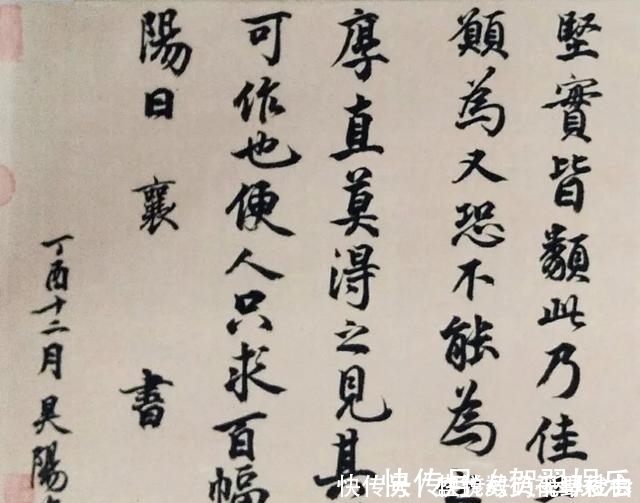 堅實皆類此乃佳
願為又恐不能為
厚直莫得之見其
可作也便人只求百幅
陽日 襄 書
丁酉十二月昊陽
快传号 /